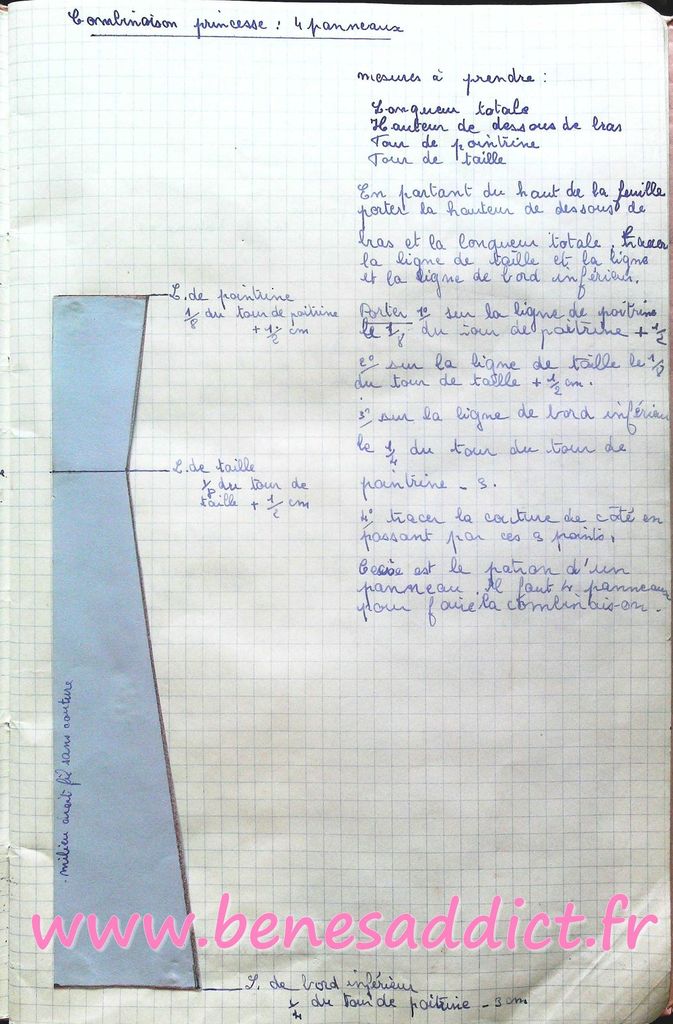 Combinaison princesse : 4 panneaux
mesures à prendre :
Longueur totale
Hauteur de dessous de bras
Tour de pointrine
Tour de taille
En partant du haut de la feuille
porter la hauteur de dessous de
bras et la longueur totale. tracer
la ligne de taille et la ligne
et la ligne de bord inférieur.
Porter 1° sur la ligne de poitrine
le 1/8 du tour de poitrine + 1/2
2° sur la ligne de taille le 1/8
du tour de taille + 1/2 cm.
3° sur la ligne de bord inférieur
le 1/4 du tour du tour de
pointrine - 3.
4° tracer la couture de côté en
passant par ces 3 points.
est le patron d'un
panneau. Il faut 4 panneaux
pour faire la combinais-on.
L. de pointrine
1/8 du tour de poitrine
+ 1/2 cm
L. de taille
1/8 du tour de
taille + 1/2 cm
milieu droit fil sans couture
L. de bord inférieur
1/4 du tour de poitrine - 3 cm
www.benesaddict.fr